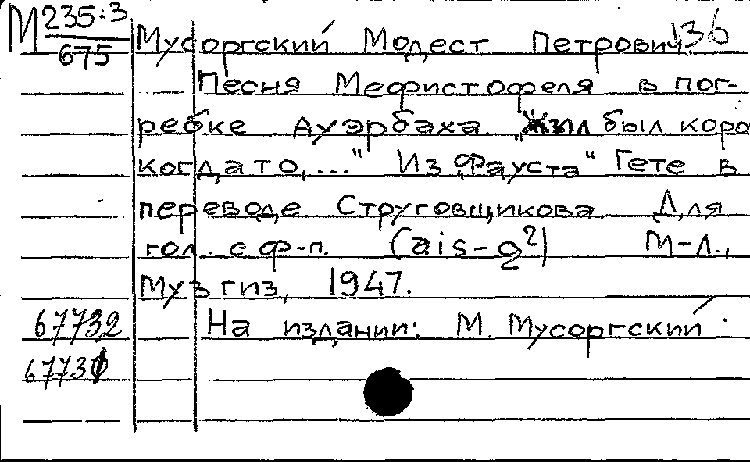 М 235:3
675
Мусоргский Модест Петрович 136
Песня Мефистофеля в пог-
ребке Ауэрбаха „Жил был коро
когда то,..." Из „Фауста" Гете в
переводе Струговщикова. Для
гол. с ф-п. (ais-g²) М-Л.,
Музгиз, 1947.
67732 На издании: М. Мусоргский